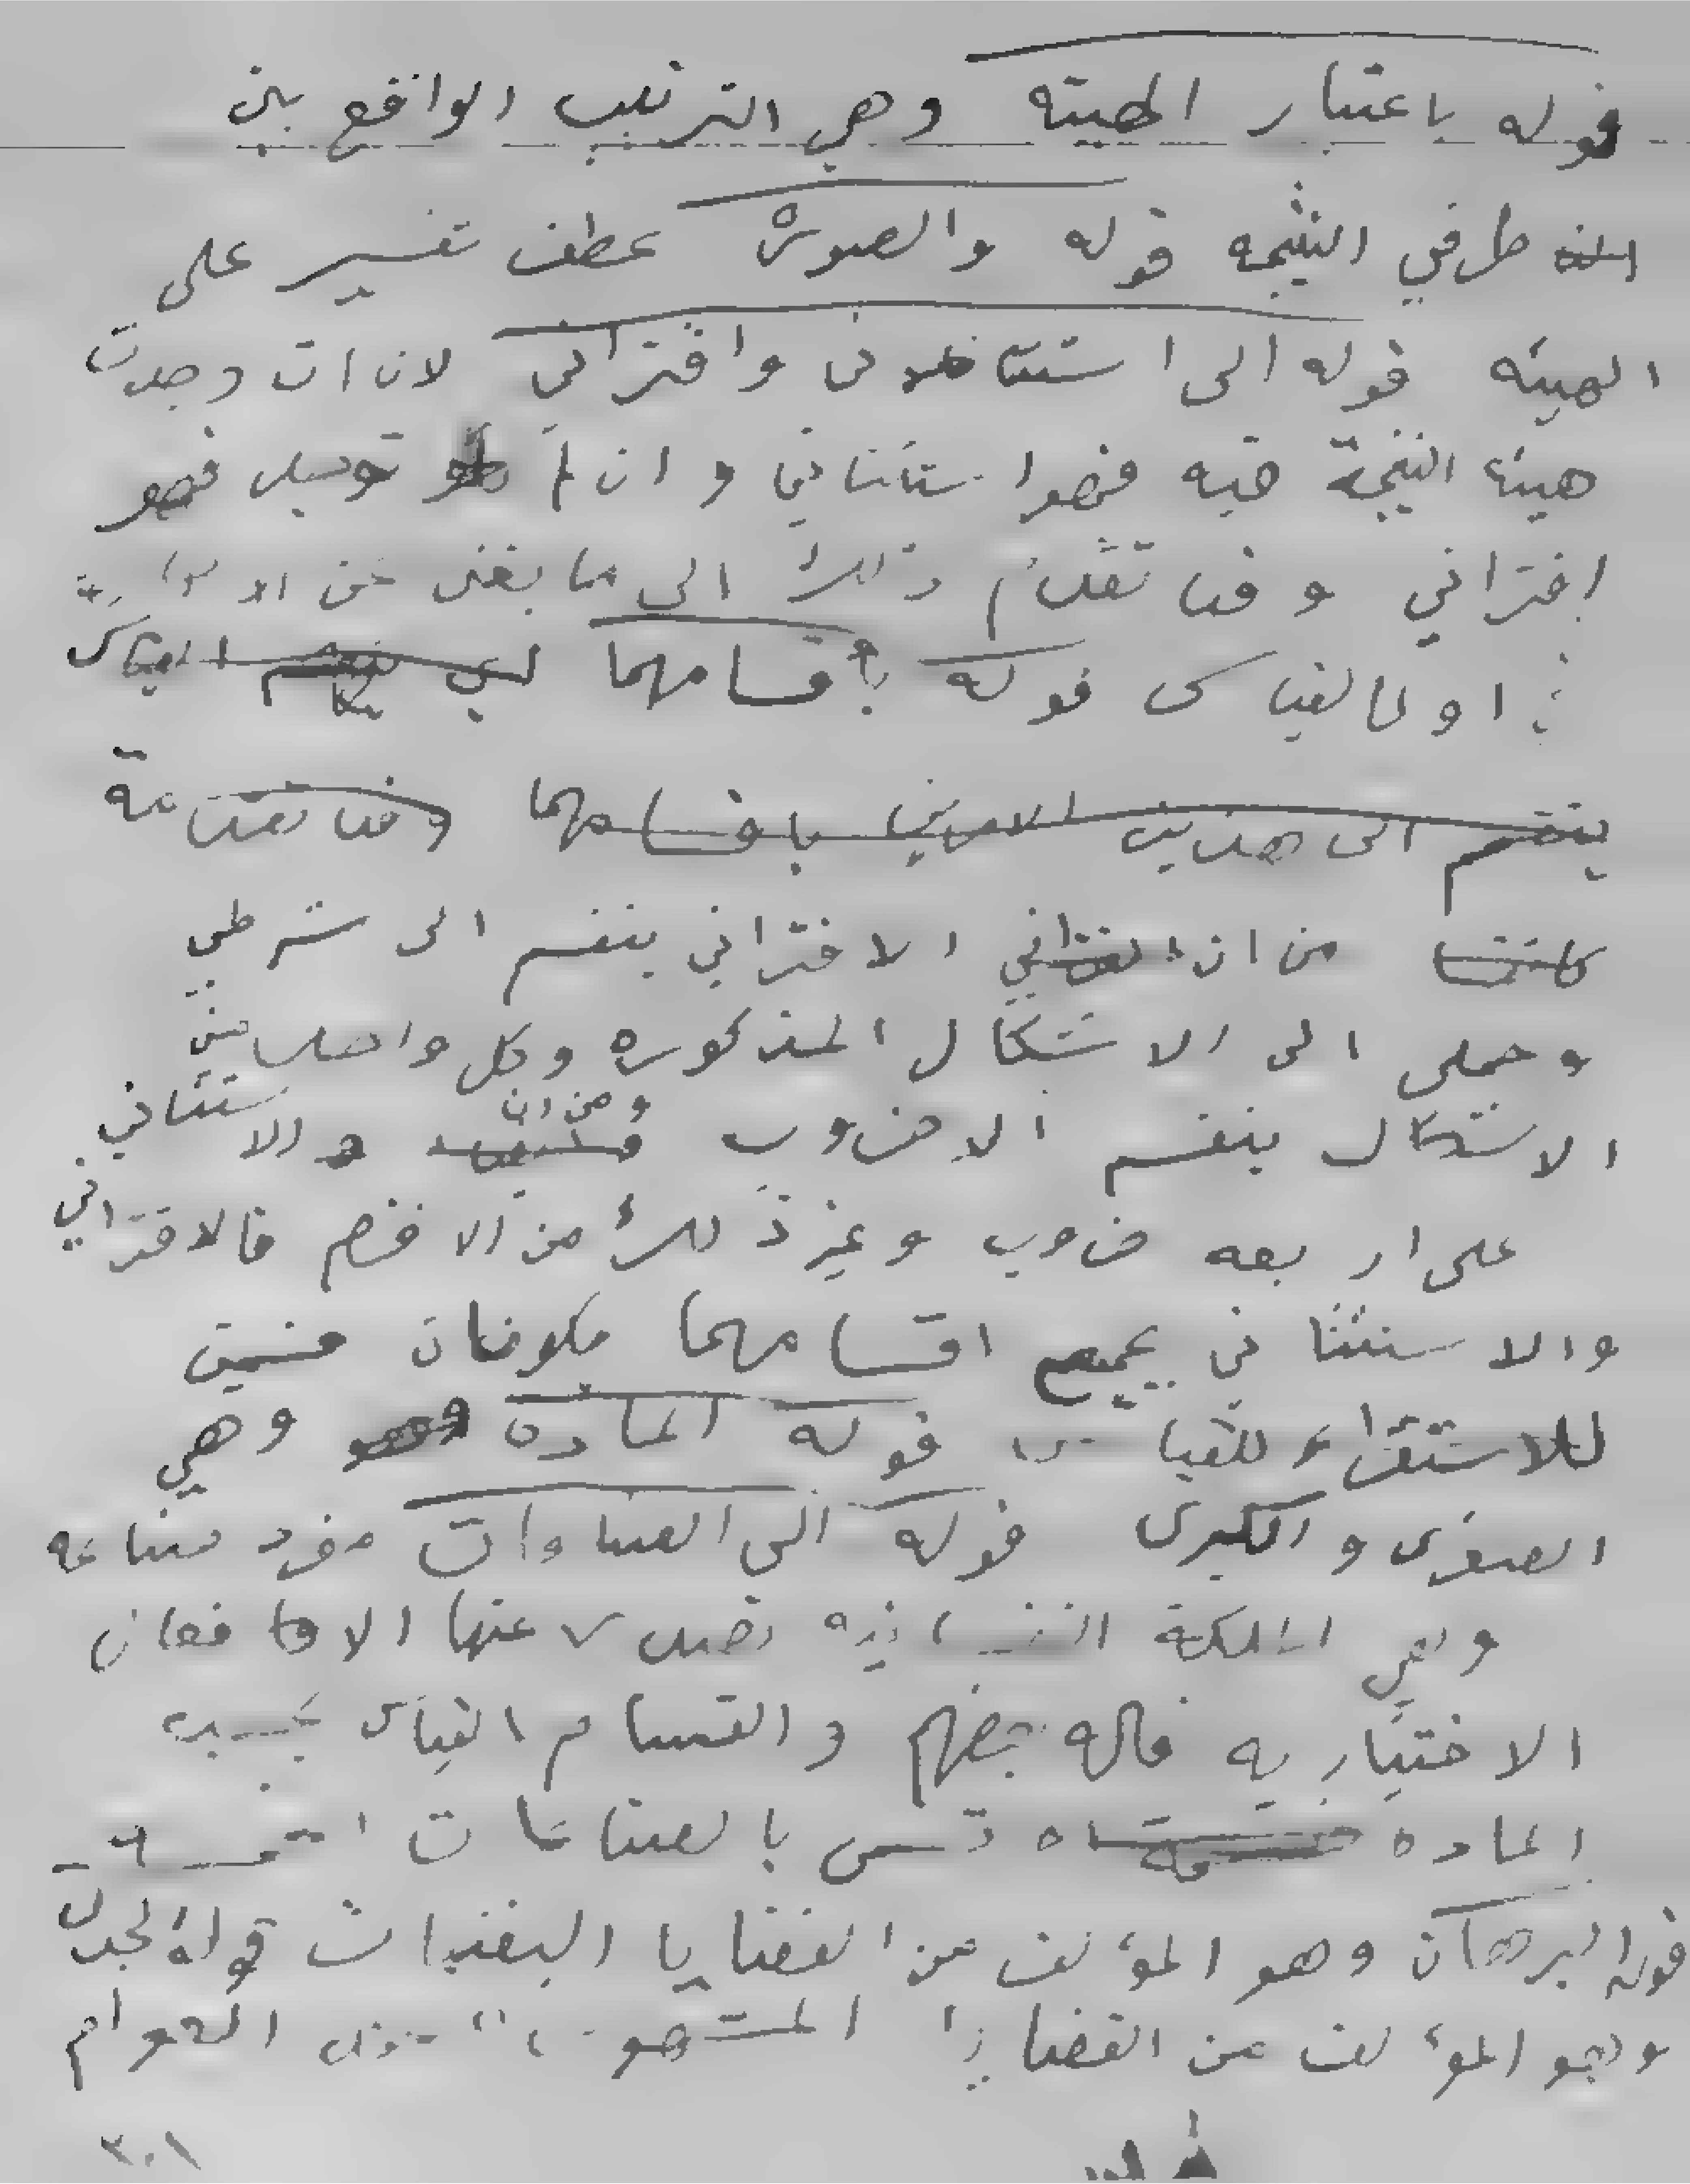 قوله باعتبار الهيئة وهي الترتيب الواقع بين
طرفي النتيجه قوله والصورة عطف تفسير على
الهيئه قوله الى استثنائي واقتراني لانه ان وجدت
هيئة النتيجة فيه فهو استثنائي وان لم توجد فهو
اقتراني وقد تقدم ذلك الى ما يغني عن
اول القياس قوله باقسامهما لكي ينقسم القياس
ينقسم الى هذين الامرين باقسامهما وقد تقدمة
من ان الاقتراني ينقسم الى شرطي
وحملي الى الاشكال المذكوره وكل واحد من
الاشكال ينقسم الا ضروب ومن ان والاستثنائي
على اربعه ضروب وغير ذلك من الا فخم فالاقتراني
والاستثنائي بجميع اقسامهما يكونان قسمين
للاستقراء وللقياس قوله الماده وهي
الصغرى والكبرى قوله الى الصناعات مفرد صناعه
وهي الملكة النفسانيه تصدر عنها الا فعال
الاختياريه قاله بعضهم وانقسام القياس بحسب
الماده تسمى بالصناعات
قوله البرهان وهو المؤلف من القضايا اليقنيات قوله الجدل
وهو المؤلف من القضايا المشهورة العوام
٣٠١